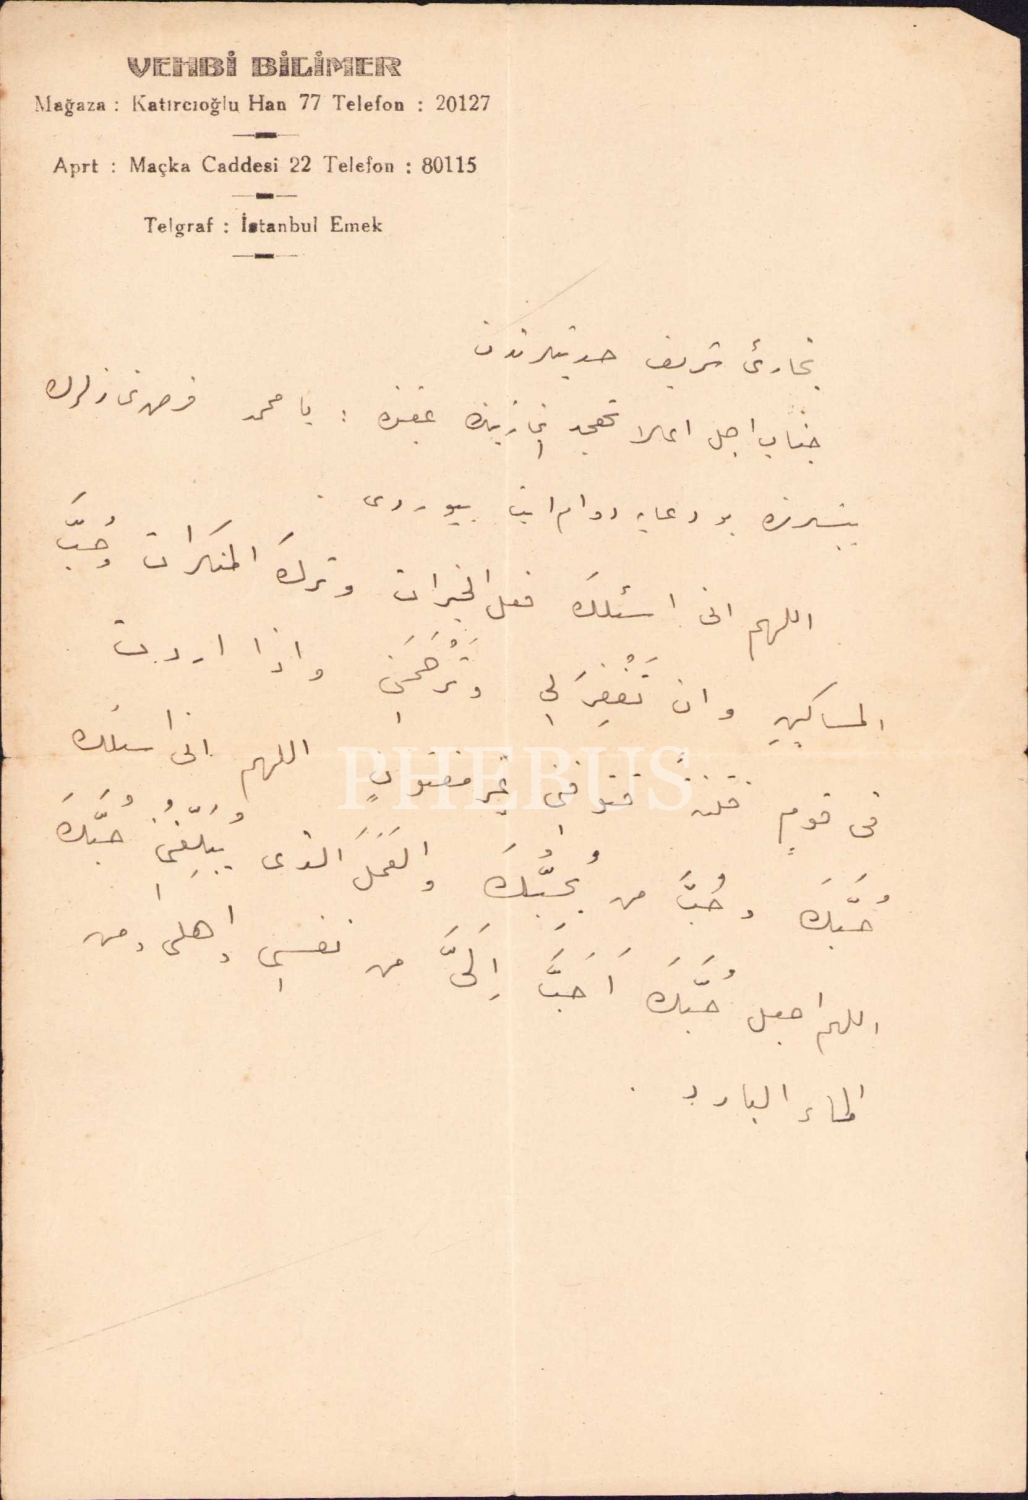 VEHBİ BİLİMER
Mağaza : Katırcıoğlu Han 77 Telefon : 20127
Aprt : Maçka Caddesi 22 Telefon : 80115
Telgraf : İstanbul Emek
بخارئ شریف حدیثلرندن
جناب اجل اعلا تهجد نمازینك عقبنده : یا محمد فرض نمازلرك
بو دعایه دوام ایت بیوردی .
اللهم انی اسئلك فعل الخیرات وترك المنکرات وحُبَّ
المساکینِ وان تَغْفِرَ لِی وتَرْحَمَنِی واذا اردت
فی قومٍ فتنةً فتوفنی غیر مفتونٍ اللهم انی اسئلك
حُبَّكَ وحُبَّ من یُحِبُّكَ والعَمَلَ الذی یُبَلِّغُنِی حُبَّكَ
اللهم اجعل حُبَّكَ اَحَبَّ اِلَیَّ من نفسی واهلی ومن
الماء البارد .
PHEBUS